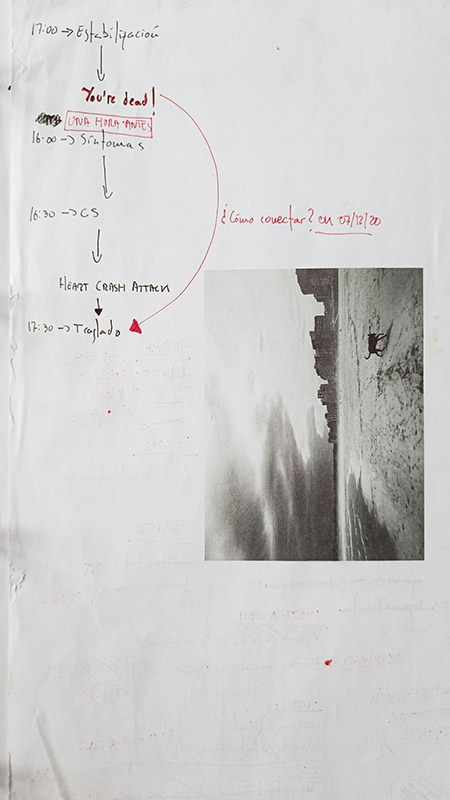 17:00 → Estabilización
You're dead!
UNA HORA ANTES
16:00 → Síntomas
16:30 → CS
¿Cómo conectar? en 07/12/20
HEART CRASH ATTACK
17:30 → Traslado